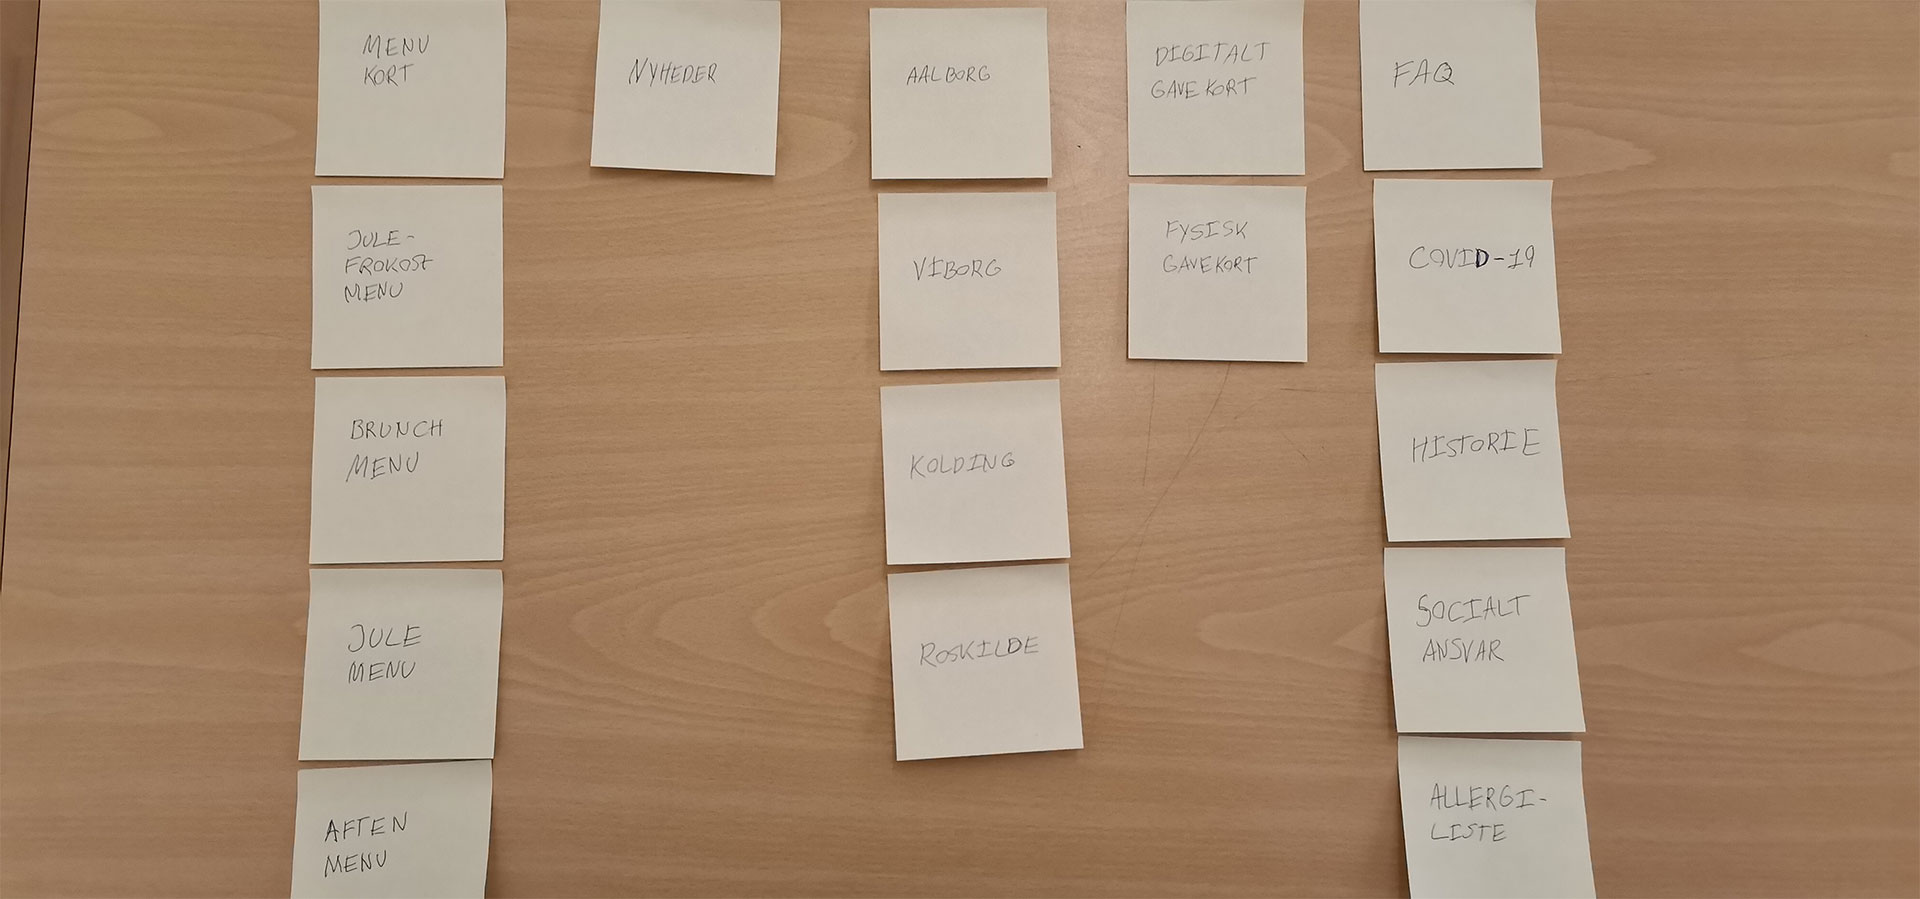 MENU
KORT
JULE-
FROKOST
MENU
BRUNCH
MENU
JULE
MENU
AFTEN
MENU
NYHEDER
AALBORG
VIBORG
KOLDING
ROSKILDE
DIGITALT
GAVEKORT
FYSISK
GAVEKORT
FAQ
COVID-19
HISTORIE
SOCIALT
ANSVAR
ALLERGI-
LISTE